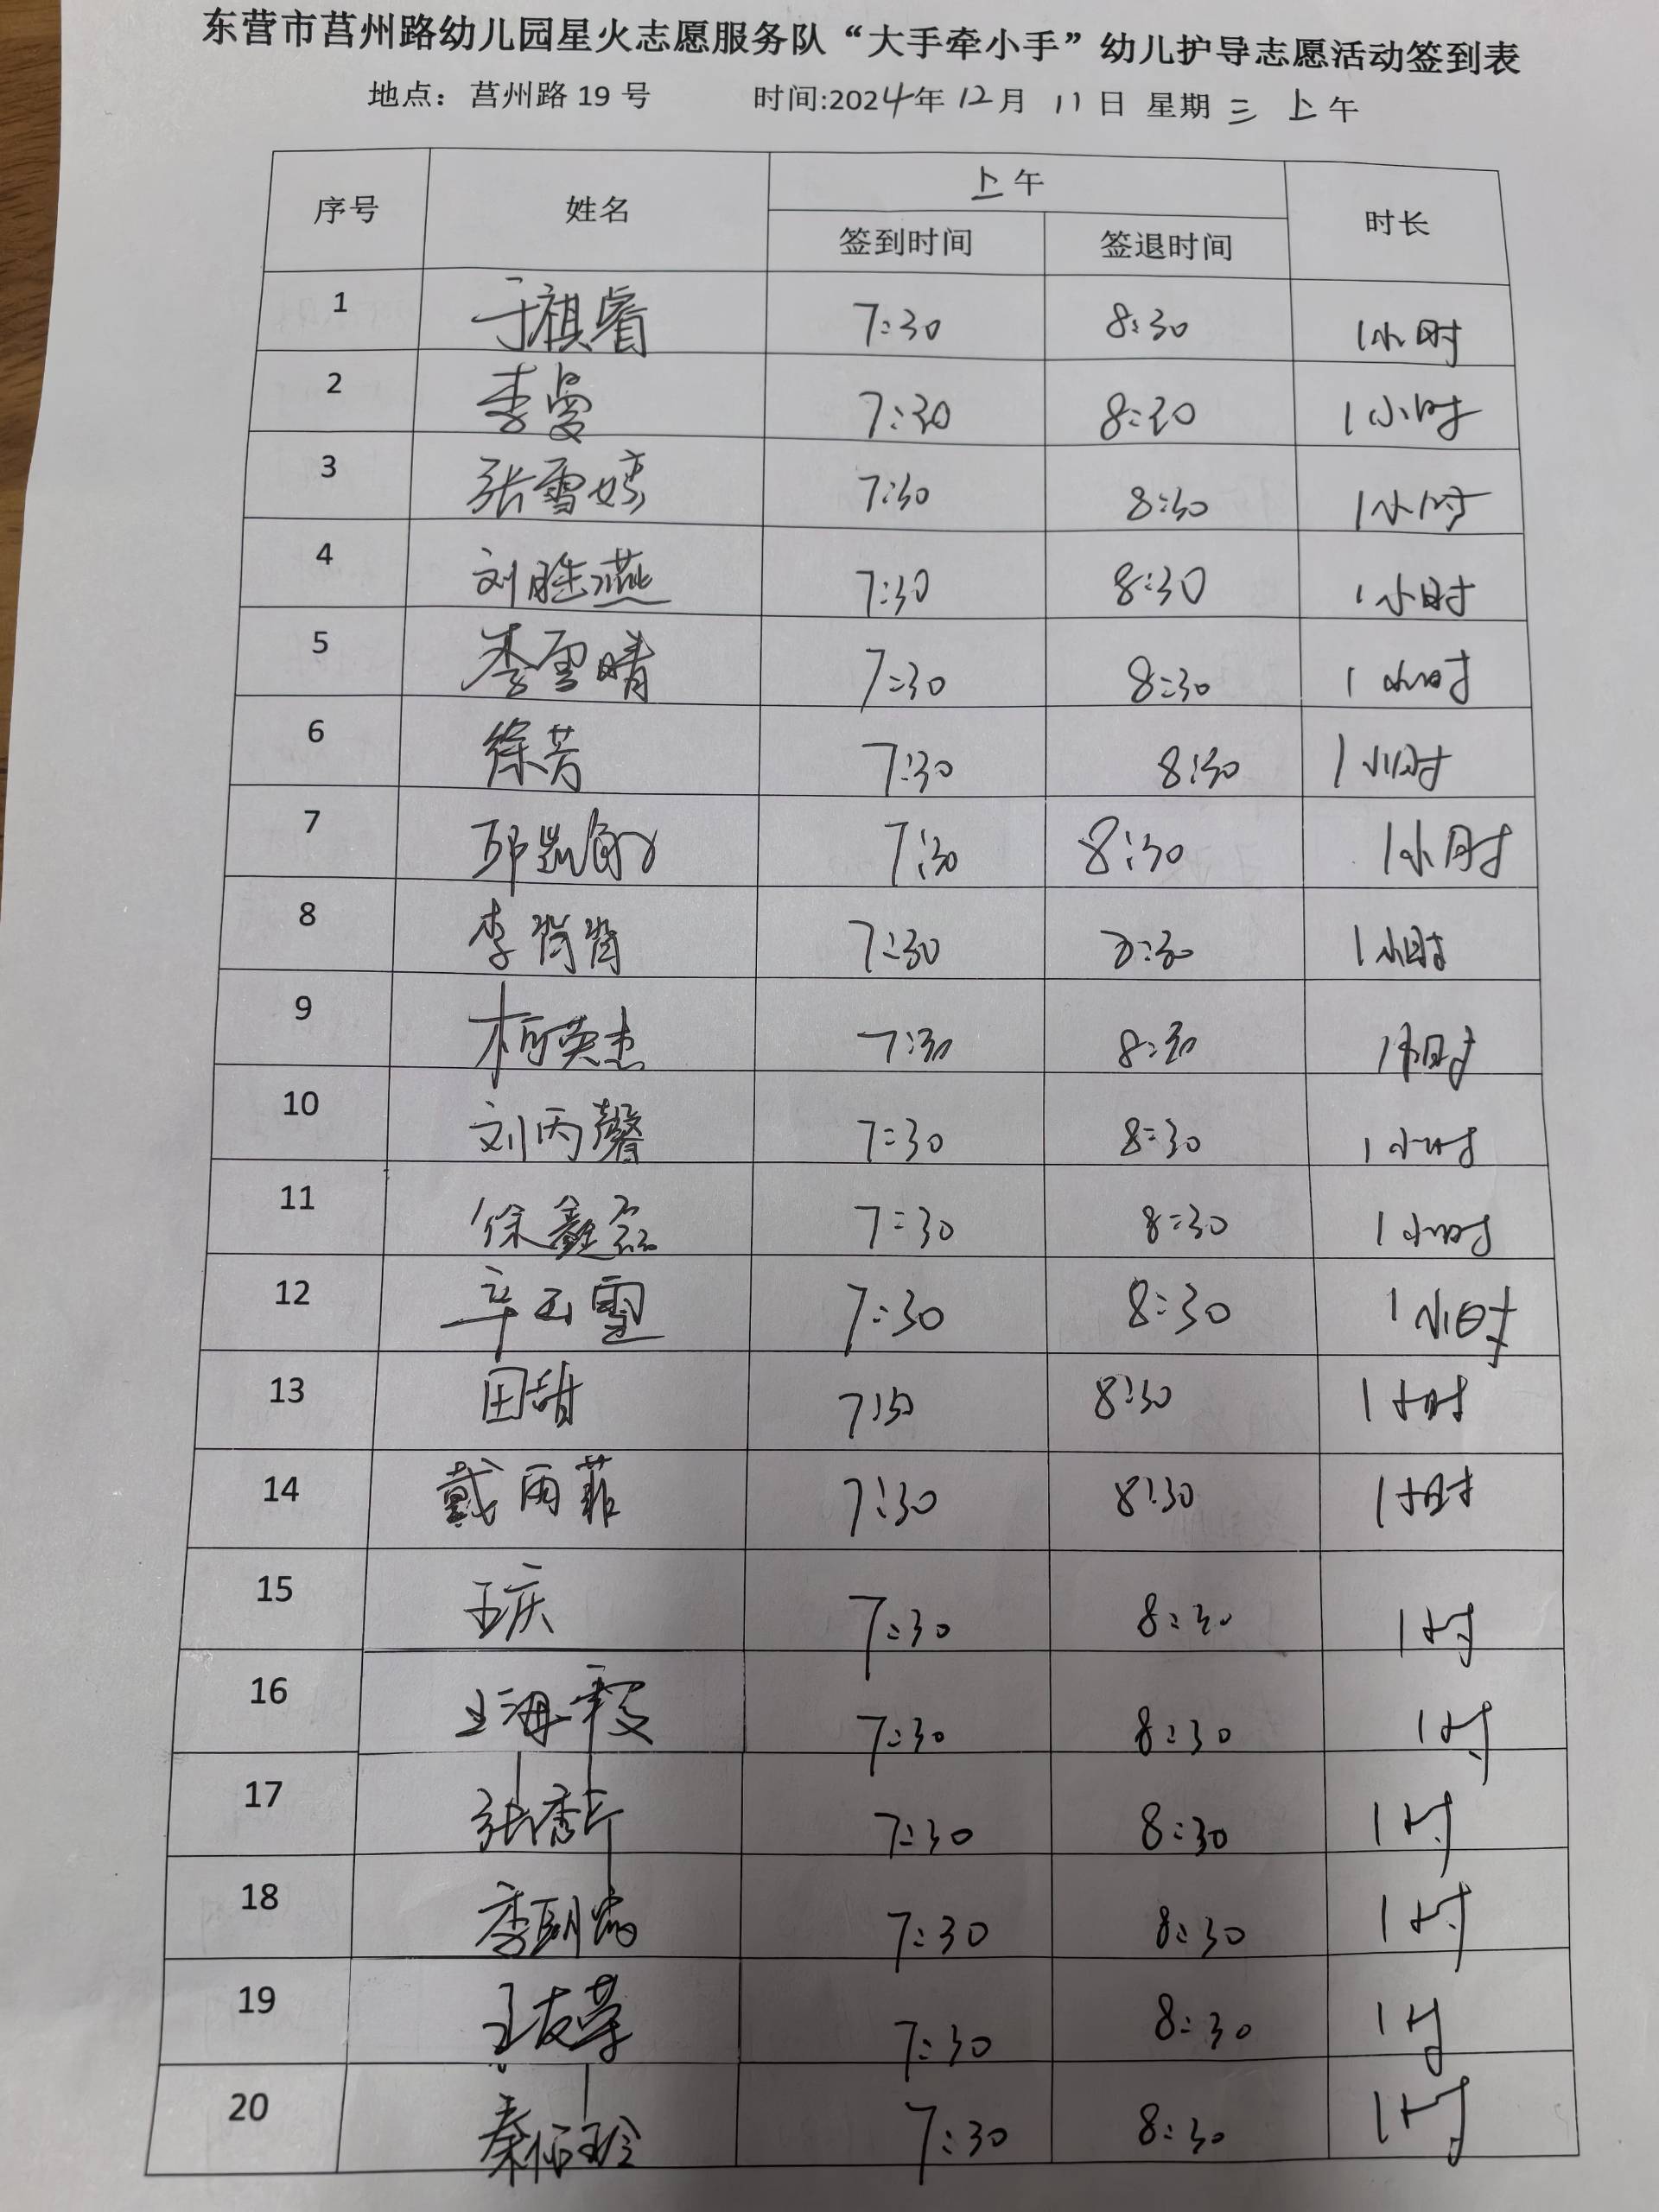 东营市莒州路幼儿园星火志愿服务队“大手牵小手”幼儿护导志愿活动签到表
地点：莒州路 19 号 时间:2024年 12月 11日 星期 三 上午
序号 姓名 上午 时长
签到时间 签退时间
1 于祺睿 7:30 8:30 1小时
2 李曼 7:30 8:30 1小时
3 张雪婷 7:30 8:30 1小时
4 刘胜燕 7:30 8:30 1小时
5 李雪晴 7:30 8:30 1小时
6 徐芳 7:30 8:30 1小时
7 邱凯 7:30 8:30 1小时
8 李肖肖 7:30 8:30 1小时
9 柯英杰 7:30 8:30 1小时
10 刘丙馨 7:30 8:30 1小时
11 徐鑫磊 7:30 8:30 1小时
12 辛玉雪 7:30 8:30 1小时
13 田甜 7:30 8:30 1小时
14 戴雨菲 7:30 8:30 1小时
15 王庆 7:30 8:30 1时
16 王海霞 7:30 8:30 1时
17 张秀 7:30 8:30 1时
18 李 7:30 8:30 1时
19 王友 7:30 8:30 1时
20 秦 玲 7:30 8:30 1时